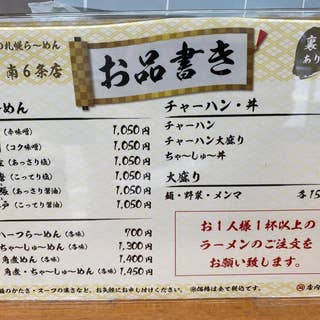 札幌ら〜めん
南6条店
お品書き
裏
あり
〜めん
(辛味噌) 1,050円
(コク味噌) 1,050円
(あっさり塩) 1,050円
(こってり塩) 1,050円
(あっさり醤油) 1,050円
(こってり醤油) 1,050円
ハーフら〜めん(各味) 700円
ちゃ〜しゅ〜めん(各味) 1,300円
角煮めん(各味) 1,400円
角煮・ちゃ〜しゅ〜めん(各味) 1,450円
チャーハン・丼
チャーハン
チャーハン大盛り
ちゃ〜しゅ〜丼
大盛り
麺・野菜・メンマ 各15
お1人様1杯以上の
ラーメンのご注文を
お願い致します。
麺のかたさ・スープの濃さなど、お気軽にお申し付けください。
※価格は全て税込です。